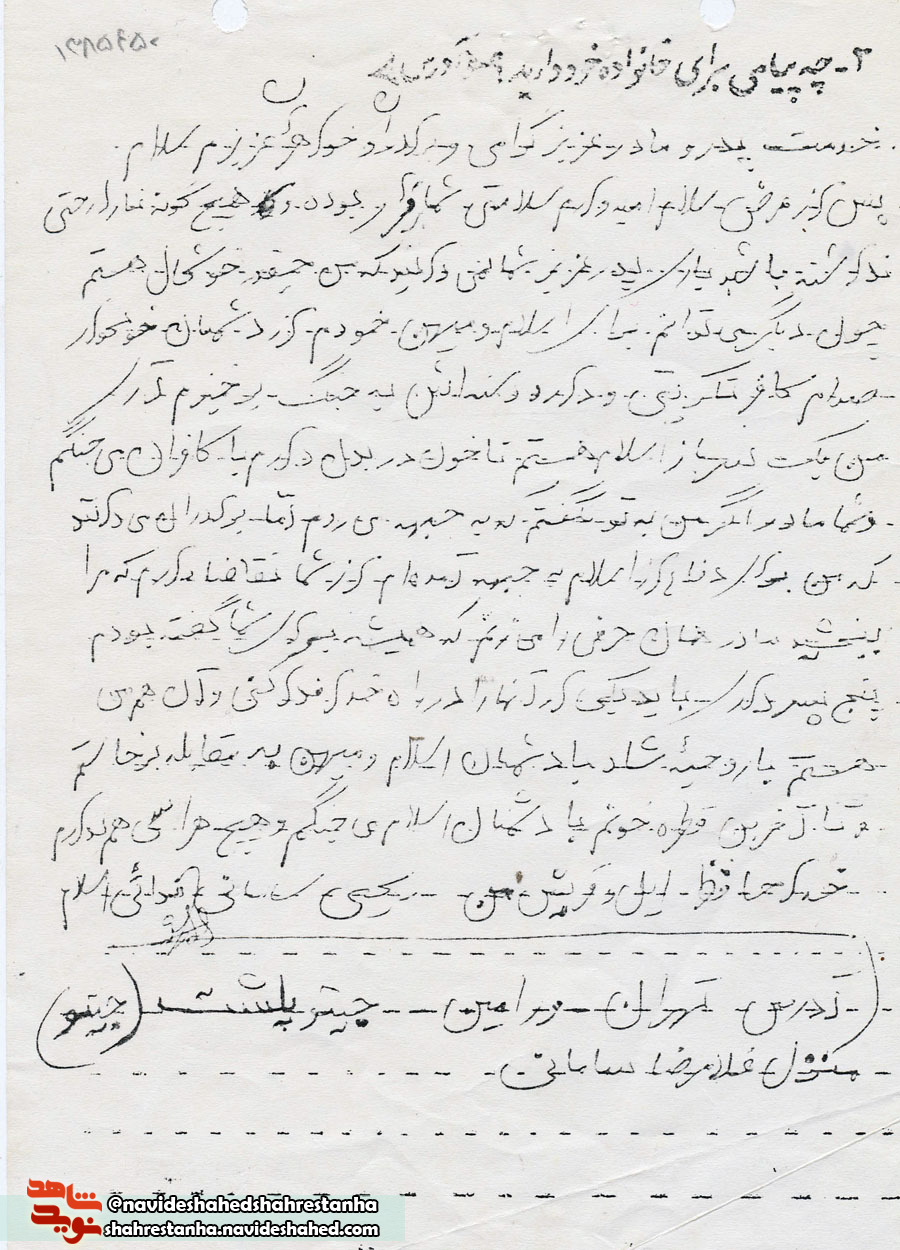 ۱۳۸۵۴۵۰
۲- چه پیامی برای خانواده خود دارید؟
خدمت پدر و مادر عزیز گرامی و برادران و خواهران عزیزم سلام
پس از عرض سلام امیدوارم سلامتی شما برقرار بوده و هیچ گونه ناراحتی
نداشته باشید باری پدر عزیز شما نمی دانید که من چقدر خوشحال هستم
چون دیگر می توانم برای اسلام و میهن خودم از دشمنان خونخوار
صدام کافر تکریتی و دار و دسته اش به جنگ برخیزم آری
من یک سرباز اسلام هستم تا خون در بدن دارم با کافران می جنگم
و شما مادر اگر من به تو نگفتم که به جبهه می روم اما برادران می دانند
که من برای دفاع از اسلام به جبهه آمده ام از شما تقاضا دارم که مرا
ببخشید مادر همان حرفی را می زنم که همیشه برای شما گفته بودم
پنج پسر داری باید یکی از آنها را در راه خدا فدا کنی و آن هم من
هستم با روحیهٔ شاد با دشمنان اسلام و میهن به مقابله برخاستم
و تا آخرین قطره خونم با دشمنان اسلام می جنگم و هیچ هراسی هم ندارم
خدا حافظ ایل و قریش من یحیی سامانی فدائی اسلام
(آدرس تهران ورامین چیتو پلشت (چیتو)
منزل غلامرضا سامانی
شاهد
نوید
@navideshahedshahrestanha
shahrestanha.navideshahed.com